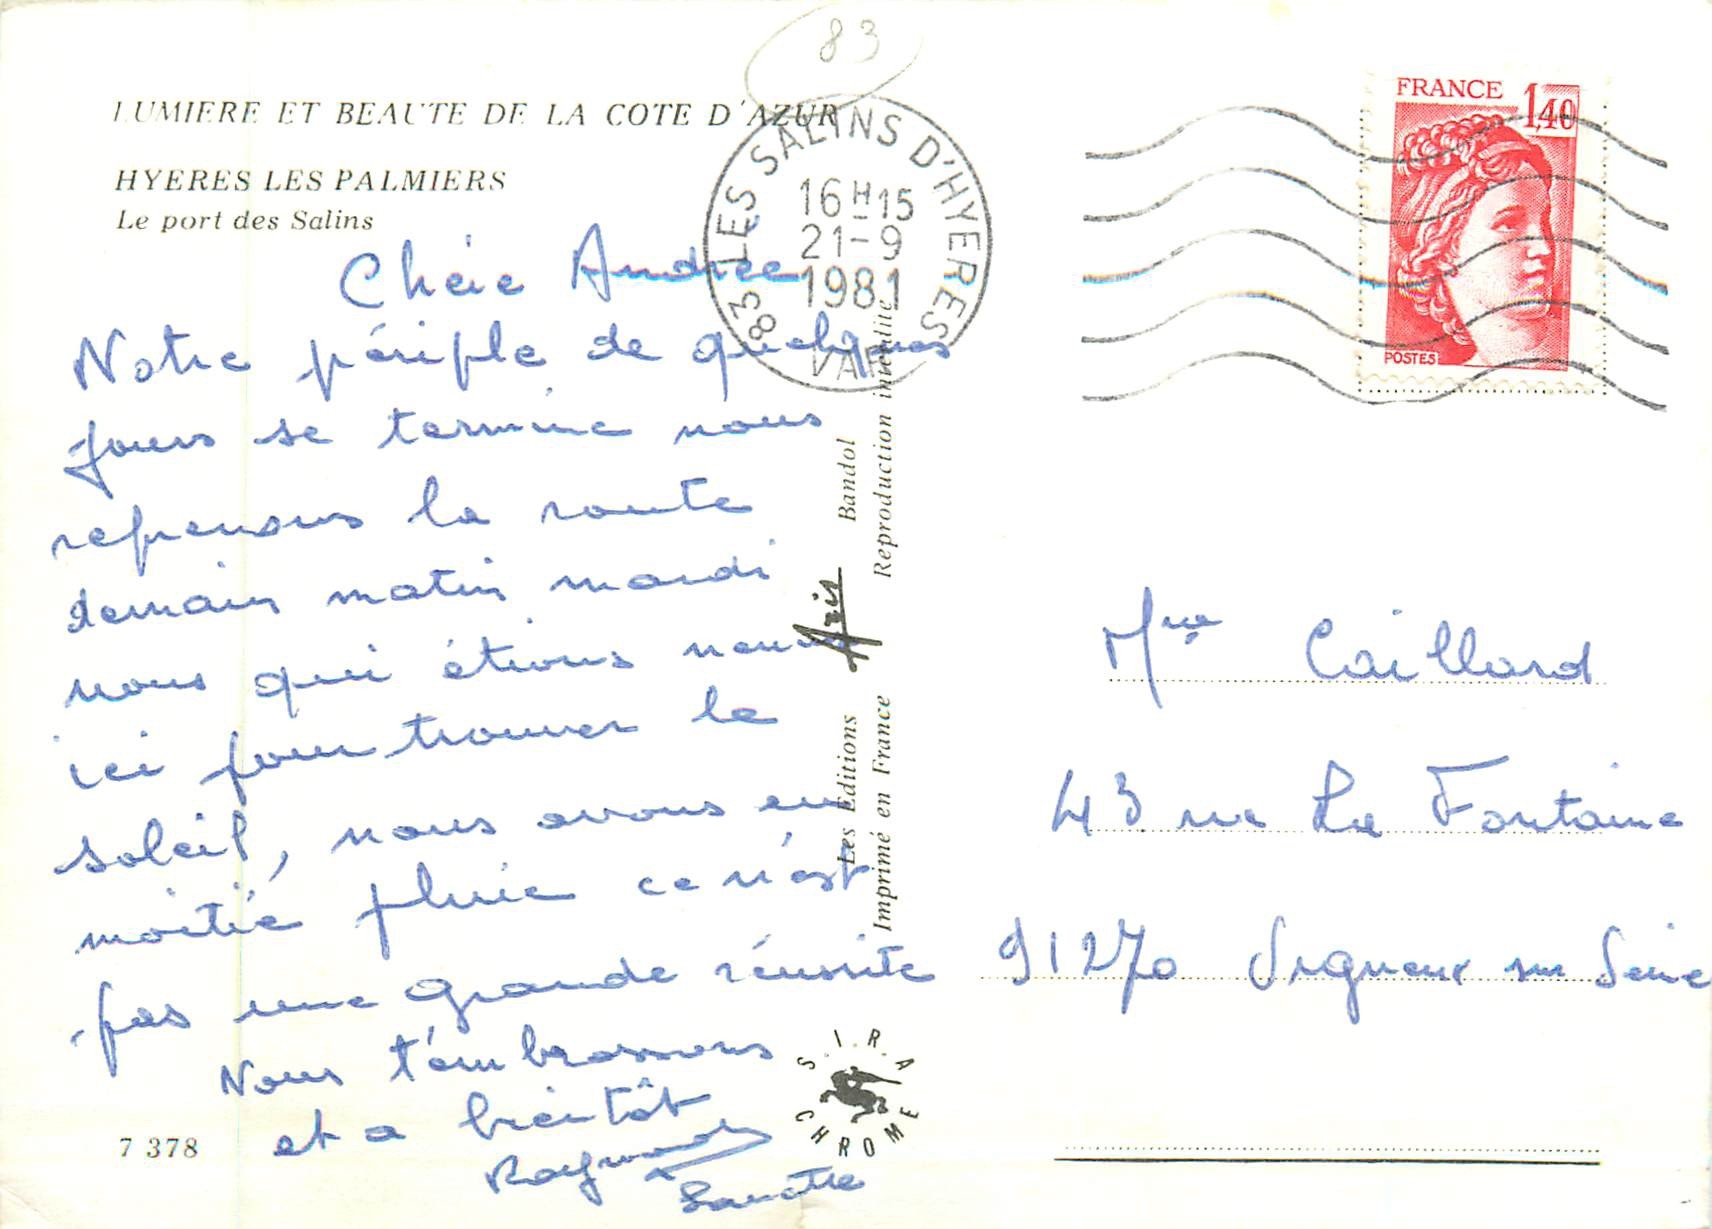 83
LUMIERE ET BEAUTE DE LA COTE D'AZUR
HYERES LES PALMIERS
Le port des Salins
83 LES SALINS D'HYERES
16 H 15
21-9
1981
VAR
FRANCE
1,40
POSTES
Chère Andrée
Notre périple de quelques
jours se termine nous
reprenons la route
demain matin mardi
nous qui étions venus
ici pour trouver le
soleil, nous avons eu
moitié pluie ce n'est
pas une grande réussite
Nous t'embrassons
et a bientôt
Raymonde
Les Editions Aris Bandol
Imprimé en France Reproduction interdite
S.I.R.A
CHROME
7 378
Mme Caillard
43 rue La Fontaine
91270 Vigneux sur Seine